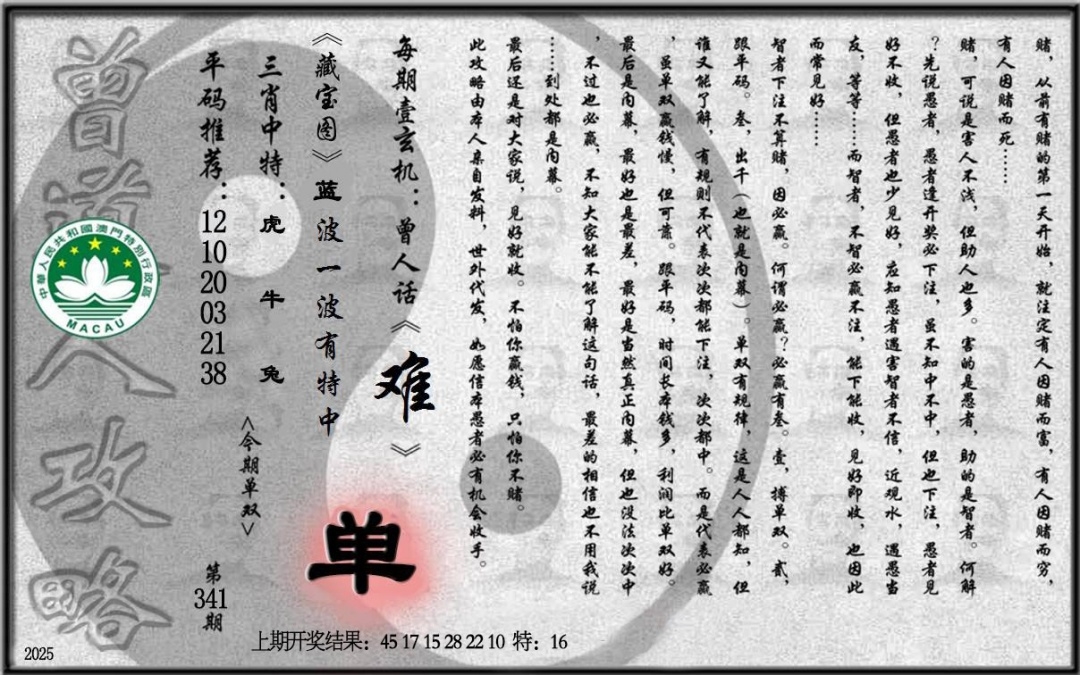 赌，从前有赌的第一天开始，就注定有人因赌而富，有人因赌而穷，
有人因赌而死……
赌，可说是害人不浅，但助人也多。害的是愚者，助的是智者。何解
？先说愚者，愚者逢开奖必下注，虽不知中不中，但也下注，愚者见
好不收，但愚者也少见好，应知愚者遇害智者不信，近观水，遇愚当
友，等等……而智者，不智必赢不注，能下能收，见好即收，也因此
而常见好……
智者下注不算赌，因必赢。何谓必赢？必赢有叁。壹，搏单双。贰，
跟平码。叁，出千（也就是内幕）。单双有规律，这是人人都知，但
谁又能了解，有规则不代表次次都能下注，次次都中。而是代表必赢
，虽单双赢钱慢，但可靠。跟平码，时间长本钱多，利润比单双好。
最后是内幕，最好也是最差，最好是当然真正内幕，但也没法次次中
，不过也必赢，不知大家能不能了解这句话，最差的相信也不用我说
……到处都是内幕。
最后还是对大家说，见好就收。不怕你赢钱，只怕你不赌。
此攻略由本人亲自发料，世外代发，如愿信本愚者必有机会收手。
每期壹玄机：曾人话《难》
《藏宝图》蓝波一波有特中
三肖中特：虎 牛 兔
平码推荐：12 10 20 03 21 38
<今期单双>
单
第341期
曾道人攻略
中華人民共和國澳門特別行政區
MACAU
上期开奖结果：45 17 15 28 22 10 特：16
2025